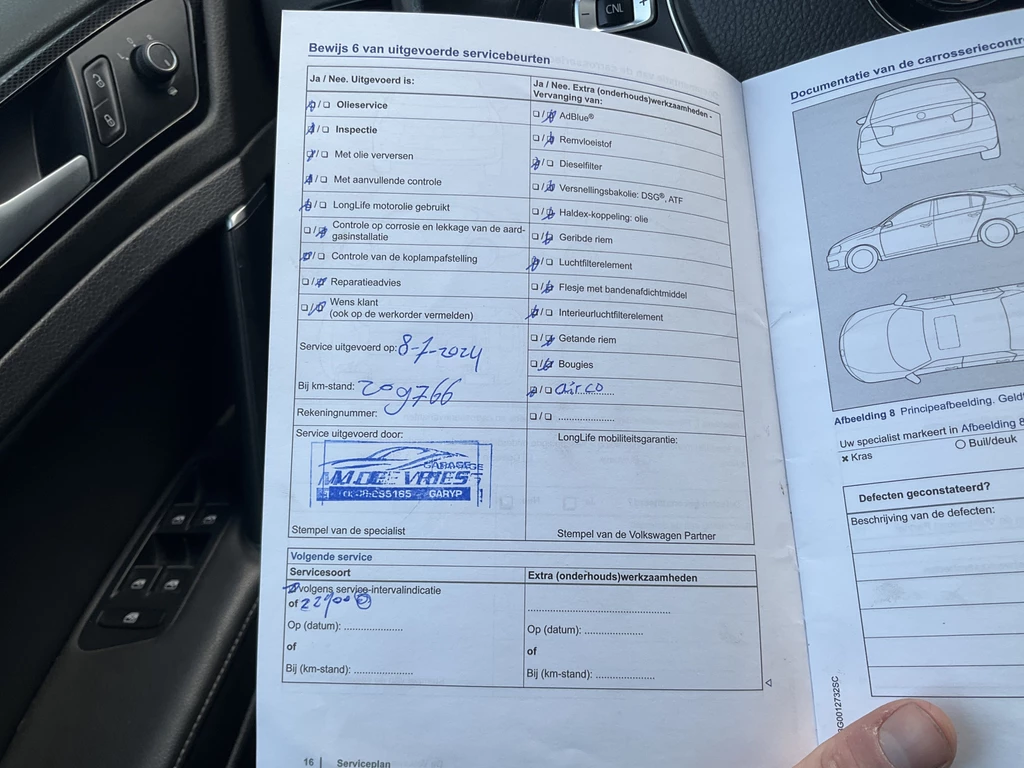 CNL
Bewijs 6 van uitgevoerde servicebeurten
Ja / Nee. Uitgevoerd is:
Olieservice
Inspectie
Met olie verversen
Met aanvullende controle
LongLife motorolie gebruikt
Controle op corrosie en lekkage van de aard-
gasinstallatie
Controle van de koplampafstelling
Reparatieadvies
Wens klant
(ook op de werkorder vermelden)
Service uitgevoerd op: 8-7-2024
Bij km-stand: 209766
Rekeningnummer:
Service uitgevoerd door:
GARAGE
M.DE VRIES
GARYP
Stempel van de specialist
Ja / Nee. Extra (onderhouds)werkzaamheden -
Vervanging van:
AdBlue®
Remvloeistof
Dieselfilter
Versnellingsbakolie: DSG®, ATF
Haldex-koppeling: olie
Geribde riem
Luchtfilterelement
Flesje met bandenafdichtmiddel
Interieurluchtfilterelement
Getande riem
Bougies
airco
....................
LongLife mobiliteitsgarantie:
Stempel van de Volkswagen Partner
Volgende service
Servicesoort
volgens service-intervalindicatie
of
Op (datum): ....................
of
Bij (km-stand): ....................
Extra (onderhouds)werkzaamheden
................................................
Op (datum): ....................
of
Bij (km-stand): ....................
16 | Serviceplan
Documentatie van de carrosseriecontr
Afbeelding 8 Principeafbeelding. Geld
Uw specialist markeert in Afbeelding 8
× Kras
○ Buil/deuk
Defecten geconstateerd?
Beschrijving van de defecten:
G0012732SC